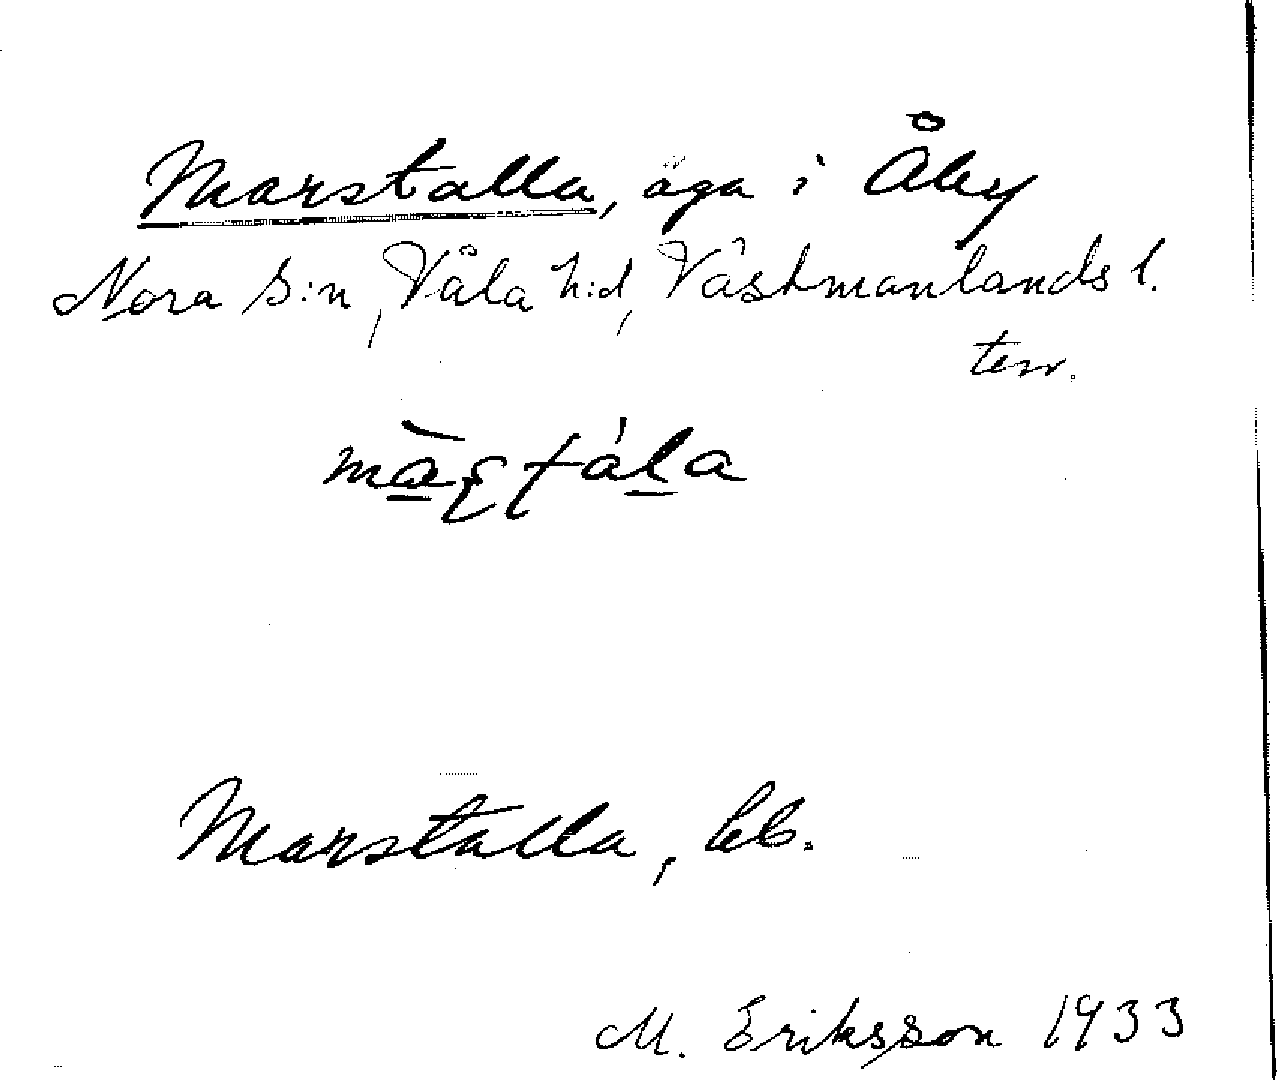 Marstalla, äga i Åby
Nora s:n, Våla h:d, Västmanlands l.
terr.
Marstalla, bb.
M. Eriksson 1933